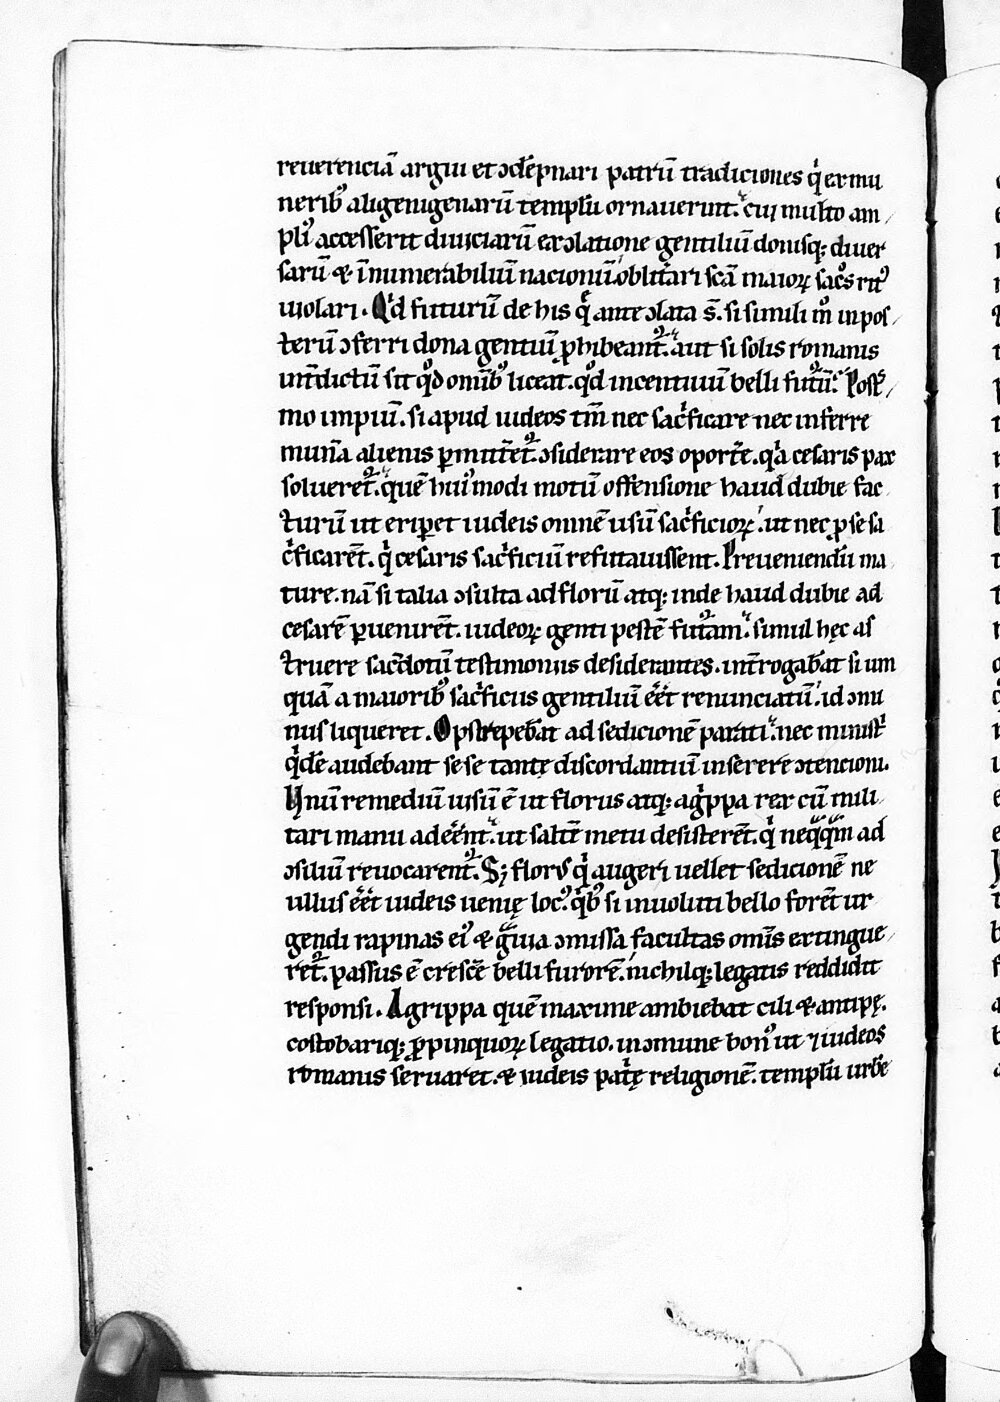 reuerenciā argui et ɔdēpnari patrū tradiciones qͥ ex mu
neribꝰ aligenigenarū templū ornauerunt. cui multo am
plíꝰ accesserit diuiciarū ex ɔlatione gentiliū donisq; diuer
sarū & īnumerabiliū nacionū. oblitͣari scā maioꝝ sac̄s ritꝰ
uiolari. Qͥd futurū de his qͥ ante ɔlata s̄. si simili mͦ in pos
terū ɔferri dona gentiū ꝓhibeant᷑. aut si solis romanis
int̄dictū sit qͦd omībꝰ liceat. qͦd incentiuū belli futuͬ. Post̄
mo impiū. si apud iudeos tm̄ nec sac̄ficare nec inferre
mun̄a alienis ꝑmittēt᷑. ɔsiderare eos oport̄e. qͣ cesaris pax
solueret᷑. quē huiꝰmodi motū offensione haud dubie fac
turū ut eriꝑet iudeis omnē usū sac̄ficioꝝ. ut nec ꝓ se sa
c̄ficarēt. qͥ cesaris sac̄ficiū refutauissent. Preueniendū ma
ture. nā si talia ɔsulta ad florū atq; inde haud dubie ad
cesarē ꝑuenirēt. iudeoꝝ genti pestē futᷓam. simul hęc as
truere sac̄dotū testimoniis desiderantes. int̄rogab̄at si um
quā a maioribꝰ sac̄ficiis gentiliū eēt renunciatū. id ɔmu
nus liqueret. Opstrepeb̄at ad sedicionē parati. nec minist̄
qͥdē audebant se se tantę discordantiū inserere ɔtencioni.
Vnū remediū uisū ē ut florus atq; agͥppa rex cū mili
tari manu adeēnt. ut saltē metu desisterēt. qͥ neqͣqͣm ad
ɔsiliū reuocarent᷑. Sꝫ florꝰ qͥ augeri uellet sedicionē ne
ullus eēt iudeis uenię locꝰ. qͥbꝰ si inuoluti bello forēt ur
gendi rapinas eiꝰ & gͣuia ɔmissa facultas om̄is extingue
ret᷑. passus ē crescē belli furorē. nichilq; legatis reddidit
responsi. Agrippa quē maxime ambiebat cili & antipę.
costobariq; ꝓpinquoꝝ legatio. in ɔmune bonꝰ ut ⁊ iudeos
romanis seruaret. & iudeis pat̄ę religionē. templū urbē